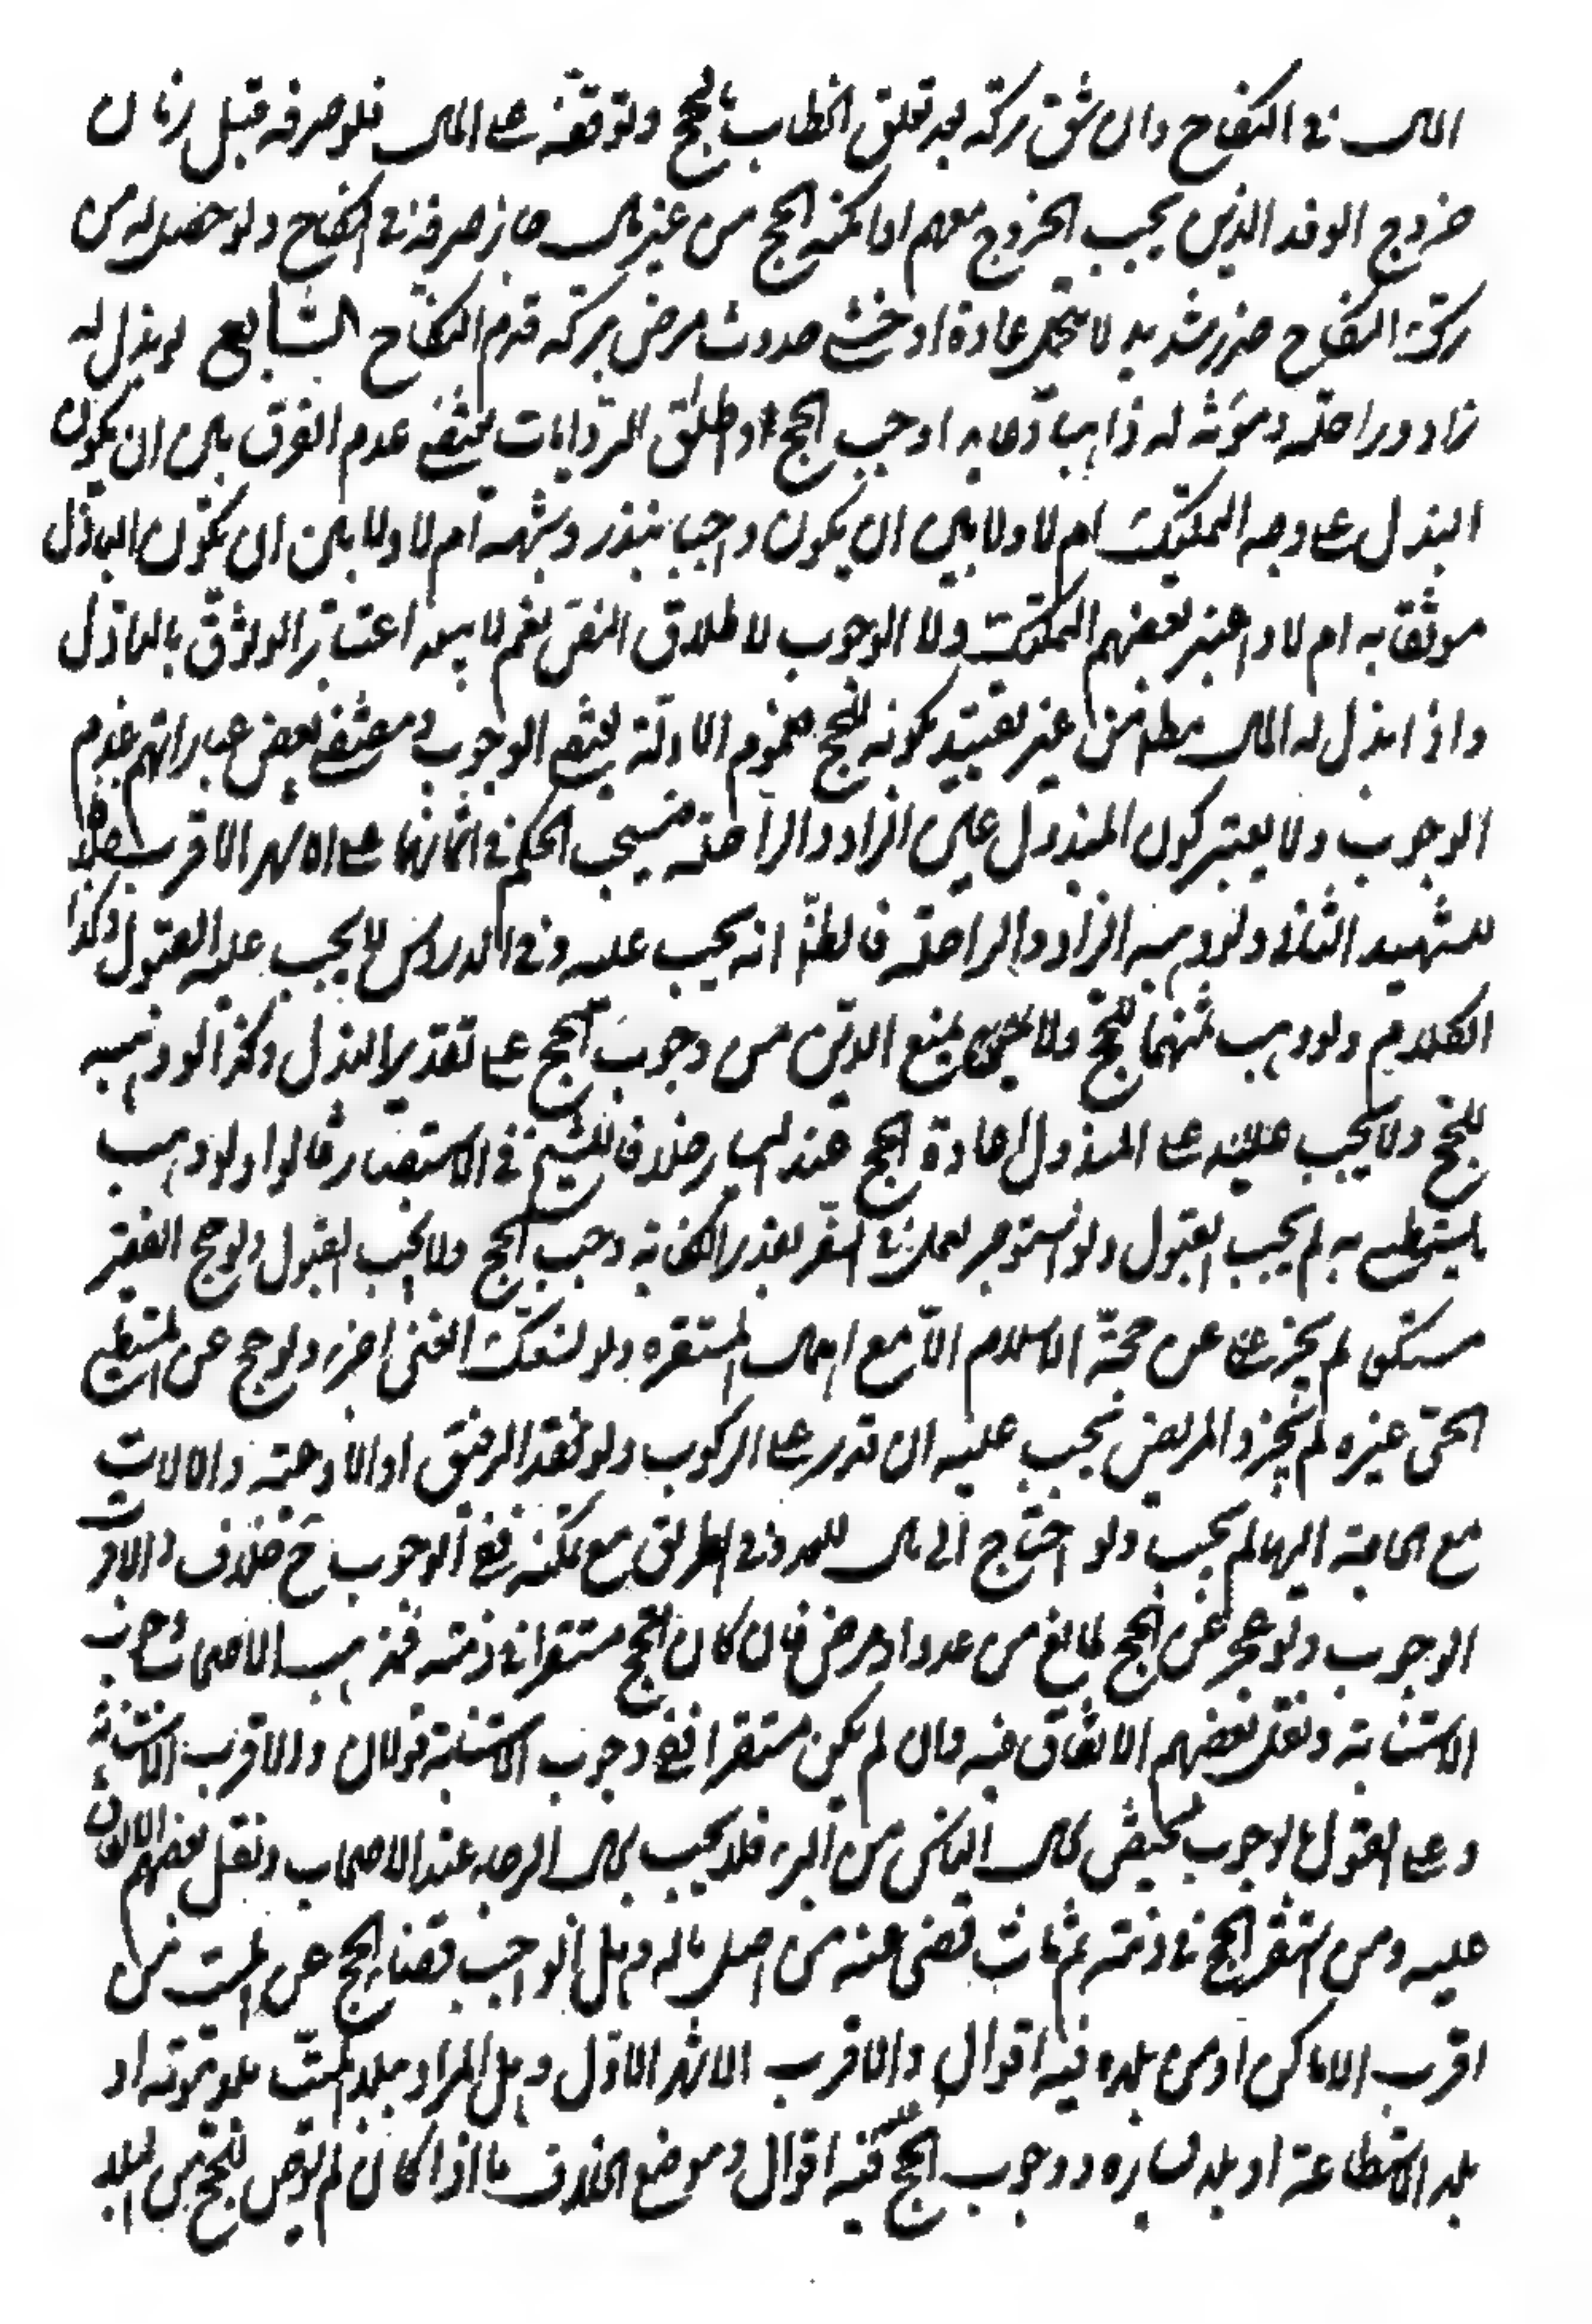 المال في النكاح وان شق تركه بعد تعلق الخطاب بالحج وتوقفه على المال فلو صرفه قبل زمان
خروج الوفد الذين يجب الخروج معهم او امكنه الحج من غير مال جاز صرفه في النكاح ولو حصل له من
ترك النكاح ضرر شديد لا يتحمل عادة او خشي حدوث مرض بتركه قدم النكاح السابع لو بذل له
زاد وراحلة ومؤنة له ذاهبا وعايدا وجب الحج واطلاق الروايات يقتضي عدم الفرق بين ان يكون
البذل على وجه التمليك ام لا ولا بين ان يكون واجبا بنذر وشبهه ام لا ولا بين ان يكون الباذل
موثقا به ام لا واعتبر بعضهم التمليك ولا الوجوب لاطلاق النص نعم لا يبعد اعتبار الوثوق بالباذل
واذا بذل له المال مطلقا من غير تقييد بكونه للحج فعموم الادلة يقتضي الوجوب ومقتضى بعض عباراتهم عدم
الوجوب ولا يعتبر كون المبذول عين الزاد والراحلة فيسحب الحكم في اثمانها على الاشهر الاقرب خلافا
للشهيد الثاني ولو وهبه الزاد والراحلة فالظ انه يجب عليه وفي الدروس لا يجب عليه القبول وكذا
الكلام ولو وهب ثمنهما للحج ولا يمنع الدين من وجوب الحج على تقدير البذل وكذا لو وهبه
للحج ولا يجب عليه على المبذول اعادة الحج عند اليسار خلافا للشيخ في الاستبصار قالوا ولو وهب
ما يستطيع به لم يجب القبول ولو استؤجر لعمل في السفر بقدر الكفاية وجب الحج ولا يجب القبول ولو حج الفقير
متسكعا لم يجز عن حجة الاسلام الا مع اهمال المستقره ولو تسكع الغني اجزء ولو حج عن المستطيع
الحي غيره لم يجز والمريض يجب عليه ان قدر على الركوب ولو فقد الرفيق او الاوعية والالات
مع الحاجة اليها لم يجب ولو احتاج الى مال للعدو في الطريق مع تمكنه ففي الوجوب ح خلاف والاقرب
الوجوب ولو عجز عن الحج لمانع من عدو او مرض فان كان الحج مستقرا في ذمته فمذهب الاصحاب وجوب
الاستنابة ونقل بعضهم الاتفاق فيه وان لم يكن مستقرا ففي وجوب الاستنابة قولان والاقرب الاستنابة
وعلى القول بالوجوب يختص بمال الياس من البرء فلا يجب مع الرجاء عند الاصحاب ونقل بعضهم الاتفاق
عليه ومن استقر الحج في ذمته ثم مات قضى عنه من اصل ماله وهل الواجب قضاء الحج عن الميت من
اقرب الاماكن او من بلده فيه اقوال والاقرب الاشهر الاول وهل المراد ببلد الميت بلد موته او
بلد الاستطاعة او بلد يساره ووجوب الحج عليه فيه اقوال وموضع الخلاف ما اذا كان لم يوص للحج من البلد